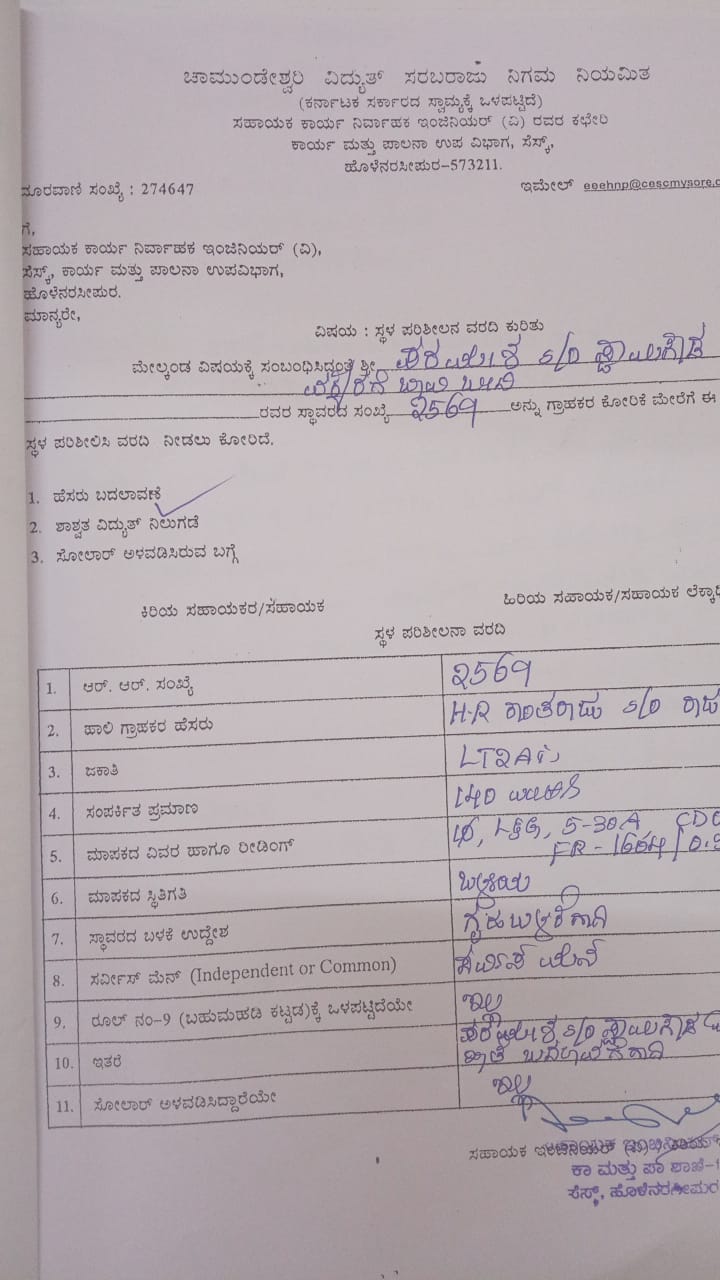 ಚಾಮುಂಡೇಶ್ವರಿ ವಿದ್ಯುತ್ ಸರಬರಾಜು ನಿಗಮ ನಿಯಮಿತ
(ಕರ್ನಾಟಕ ಸರ್ಕಾರದ ಸ್ವಾಮ್ಯಕ್ಕೆ ಒಳಪಟ್ಟಿದೆ)
ಸಹಾಯಕ ಕಾರ್ಯ ನಿರ್ವಾಹಕ ಇಂಜಿನಿಯರ್ (ವಿ) ರವರ ಕಛೇರಿ
ಕಾರ್ಯ ಮತ್ತು ಪಾಲನಾ ಉಪ ವಿಭಾಗ, ಸೆಸ್ಕ್,
ಹೊಳೆನರಸೀಪುರ-573211.
ದೂರವಾಣಿ ಸಂಖ್ಯೆ : 274647 ಇಮೇಲ್ eeehnp@cescmysore.c
ಗೆ,
ಸಹಾಯಕ ಕಾರ್ಯ ನಿರ್ವಾಹಕ ಇಂಜಿನಿಯರ್ (ವಿ),
ಸೆಸ್ಕ್, ಕಾರ್ಯ ಮತ್ತು ಪಾಲನಾ ಉಪವಿಭಾಗ,
ಹೊಳೆನರಸೀಪುರ.
ಮಾನ್ಯರೇ,
ವಿಷಯ : ಸ್ಥಳ ಪರಿಶೀಲನ ವರದಿ ಕುರಿತು
ಮೇಲ್ಕಂಡ ವಿಷಯಕ್ಕೆ ಸಂಬಂಧಿಸಿದ್ದಂತೆ ಶ್ರೀ S/O
ರವರ ಸ್ಥಾವರದ ಸಂಖ್ಯೆ 2569 ಅನ್ನು ಗ್ರಾಹಕರ ಕೋರಿಕೆ ಮೇರೆಗೆ ಈ
ಸ್ಥಳ ಪರಿಶೀಲಿಸಿ ವರದಿ ನೀಡಲು ಕೋರಿದೆ.
1. ಹೆಸರು ಬದಲಾವಣೆ
2. ಶಾಶ್ವತ ವಿದ್ಯುತ್ ನಿಲುಗಡೆ
3. ಸೋಲಾರ್ ಅಳವಡಿಸಿರುವ ಬಗ್ಗೆ
ಕಿರಿಯ ಸಹಾಯಕರ/ಸಹಾಯಕ ಹಿರಿಯ ಸಹಾಯಕ/ಸಹಾಯಕ ಲೆಕ್ಕಾಧಿ
ಸ್ಥಳ ಪರಿಶೀಲನಾ ವರದಿ
1. ಆರ್. ಆರ್. ಸಂಖ್ಯೆ 2569
2. ಹಾಲಿ ಗ್ರಾಹಕರ ಹೆಸರು H.R ಕಾಂತರಾಜು S/O ರಾಜು
3. ಜಕಾತಿ LT2Ai)
4. ಸಂಪರ್ಕಿತ ಪ್ರಮಾಣ 140
5. ಮಾಪಕದ ವಿವರ ಹಾಗೂ ರೀಡಿಂಗ್ L&G, 5-30A
FR - 1664
6. ಮಾಪಕದ ಸ್ಥಿತಿಗತಿ
7. ಸ್ಥಾವರದ ಬಳಕೆ ಉದ್ದೇಶ ಗೃಹ ಬಳಕೆಗಾಗಿ
8. ಸರ್ವೀಸ್ ಮೆನ್ (Independent or Common) ಸರ್ವಿಸ್ ಮೇನ್
9. ರೂಲ್ ನಂ-9 (ಬಹುಮಹಡಿ ಕಟ್ಟಡ)ಕ್ಕೆ ಒಳಪಟ್ಟಿದೆಯೇ ಇಲ್ಲ
10. ಇತರೆ S/O
ಖಾತೆ ಬದಲಾವಣೆಗಾಗಿ
11. ಸೋಲಾರ್ ಅಳವಡಿಸಿದ್ದಾರೆಯೇ ಇಲ್ಲ
ಸಹಾಯಕ
ಕಾ ಮತ್ತು ಪಾ ಶಾಖೆ-1
ಸೆಸ್ಕ್, ಹೊಳೆನರಸೀಪುರ